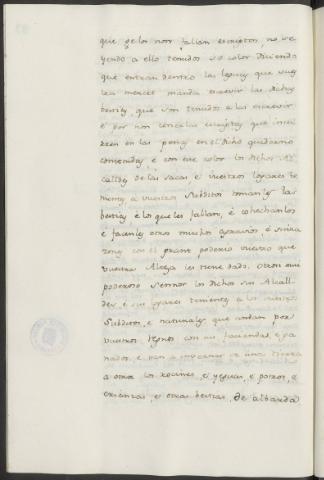 que ge los non fallan escriptos, no se
yendo a ello tenudos so color diciendo
que entran dentro las leguas que vues
tra merced manda escrevir las dichas
bestias, que son tenudos a las escrevir
é por non tenerlas escriptas que incu
rren en las penas en el dicho quaderno
contenidas, é con este color los dichos Al
calldes de las sacas é vuestros logares te
nientes a vuestros subditos tomanles las
bestias é lo que les fallan, é cohechanlos
é facenles otros muchos agravios, é sinra
zones con el grant poderio vuestro que
vuestra Alteza les tiene dado. Otrosi mui
poderoso Señor los dichos sus Alcall
des, é sus logares tenientes a los vuestros
Subditos, é naturales que andan por
vuestros Regnos con sus faciendas, é ga
nados, é van a una tierra
a otra los rocines, é yeguas, é potros, é
crianzas, é otras bestias, de albarda